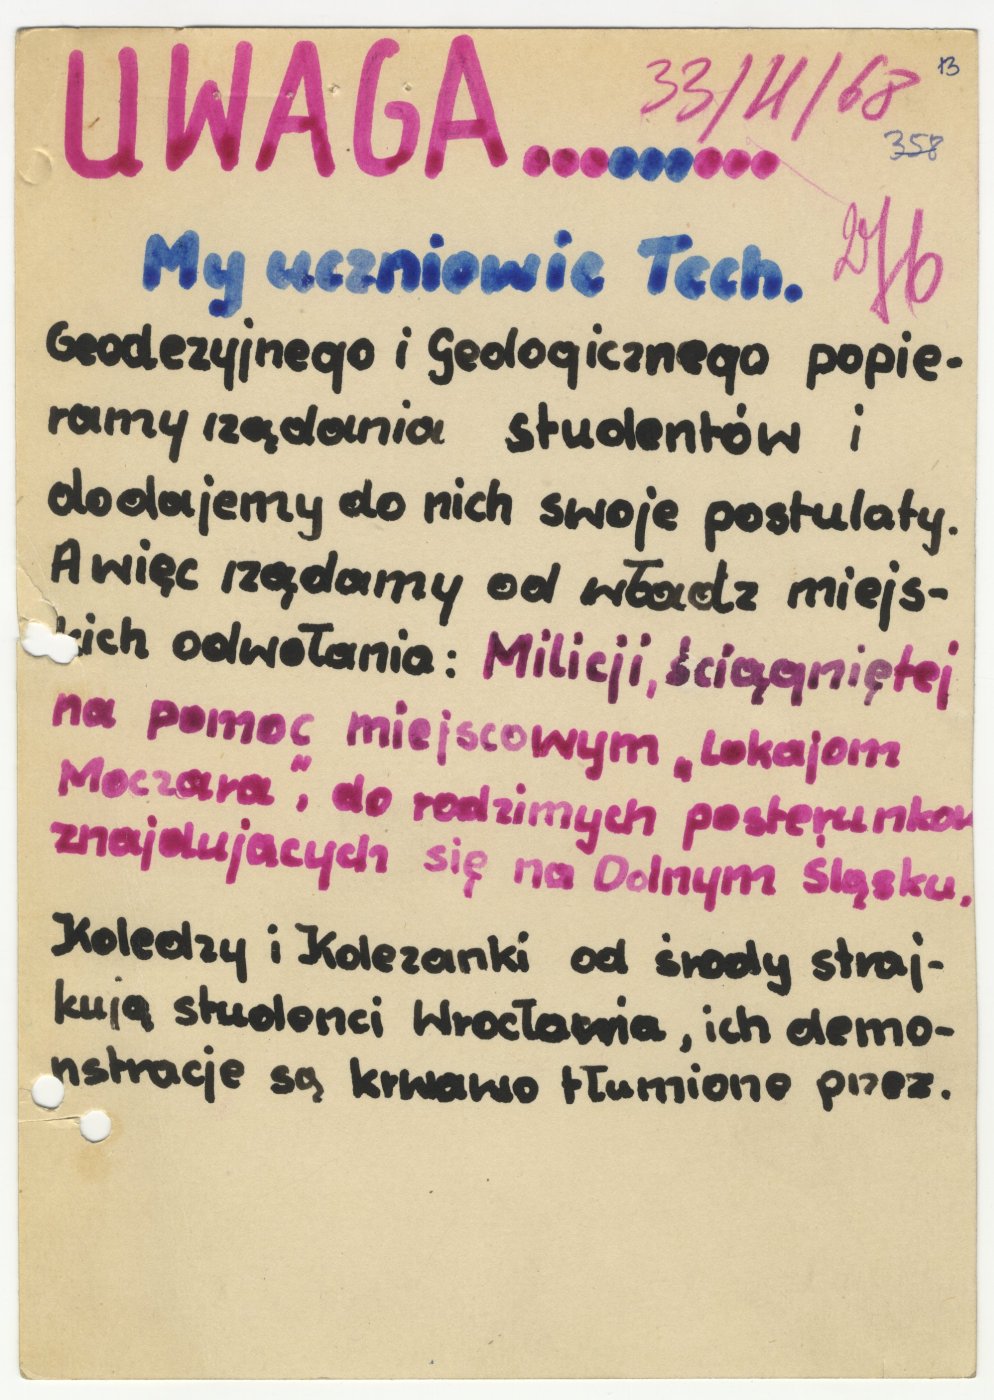 UWAGA.........
33/II/68
13
358
My uczniowie Tech.
Geodezyjnego i Geologicznego popie-
ramy rządania studentów i
dodajemy do nich swoje postulaty.
A więc rządamy od władz miejs-
kich odwołania: Milicji, ściągniętej
na pomoc miejscowym „Lokajom
Moczara", do rodzimych posterunków
znajdujących się na Dolnym Śląsku.
Koledzy i Koleżanki od środy straj-
kują studenci Wrocławia, ich demo-
nstracje są krwawo tłumione przez.